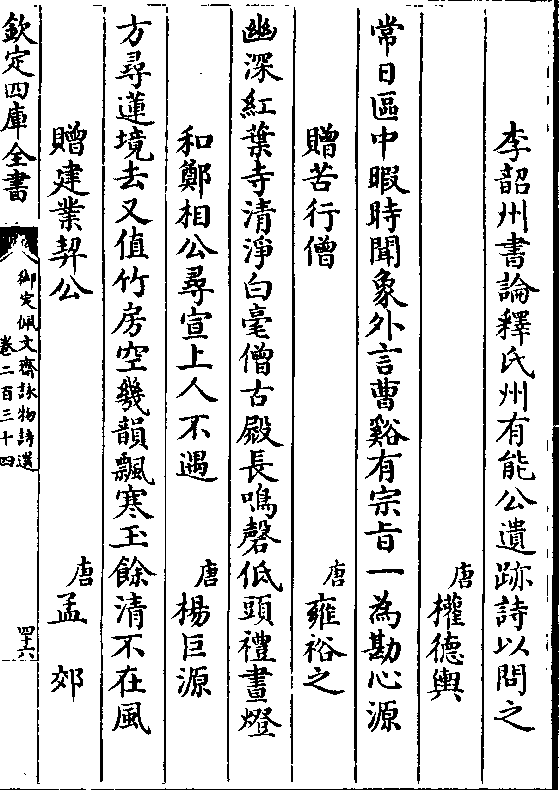 李韶州書論釋氏州有能公遺跡詩以問之
唐權德輿
常日區中暇時聞象外言曹谿有宗旨一為勘心源
贈苦行僧 唐雍裕之
幽深紅葉寺清淨白毫僧古殿長鳴磬低頭禮晝燈
和鄭相公尋宣上人不遇 唐楊巨源
方尋蓮境去又值竹房空幾韻飄寒玉餘清不在風
贈建業契公 唐孟郊
欽定四庫全書 御定佩文齋詠物詩選
卷二百三十四 四六